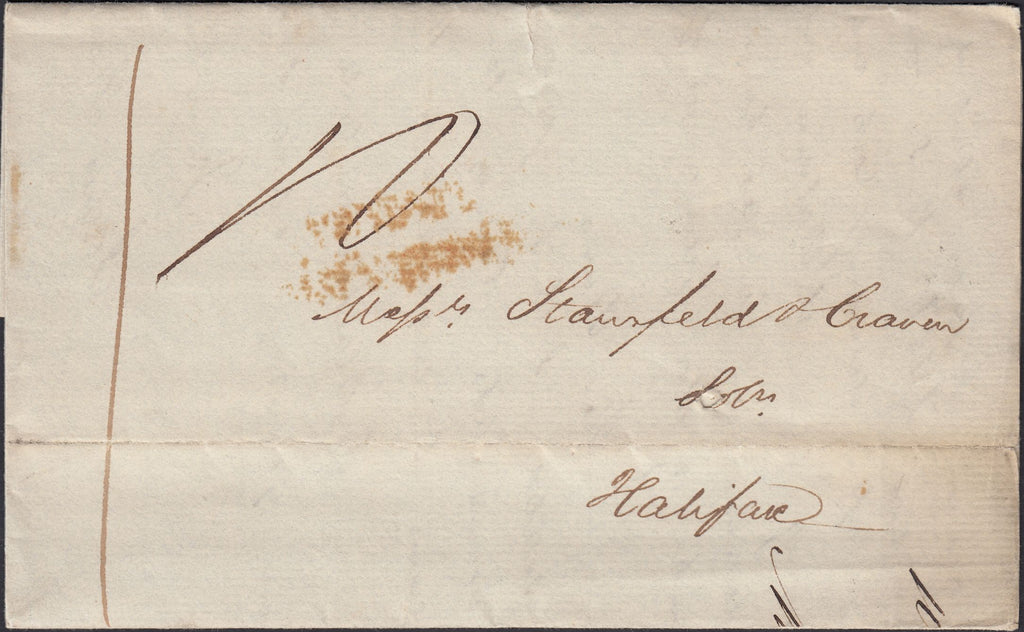 10
Messrs. Stansfeld & Craven
Solrs.
Halifax